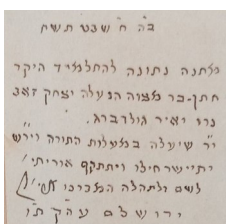 ב"ה ח' שבט תשח
מתנה נתונה להתלמיד היקר
חתן-בר מצוה הנעלה יצחק זאב
נרו יאיר גולדברג.
י"ר שיעלה במעלות התורה ויר"ש
ויתקף אוריתי'
לשם ולתהלה
ירושלם עה"ק ת"ו